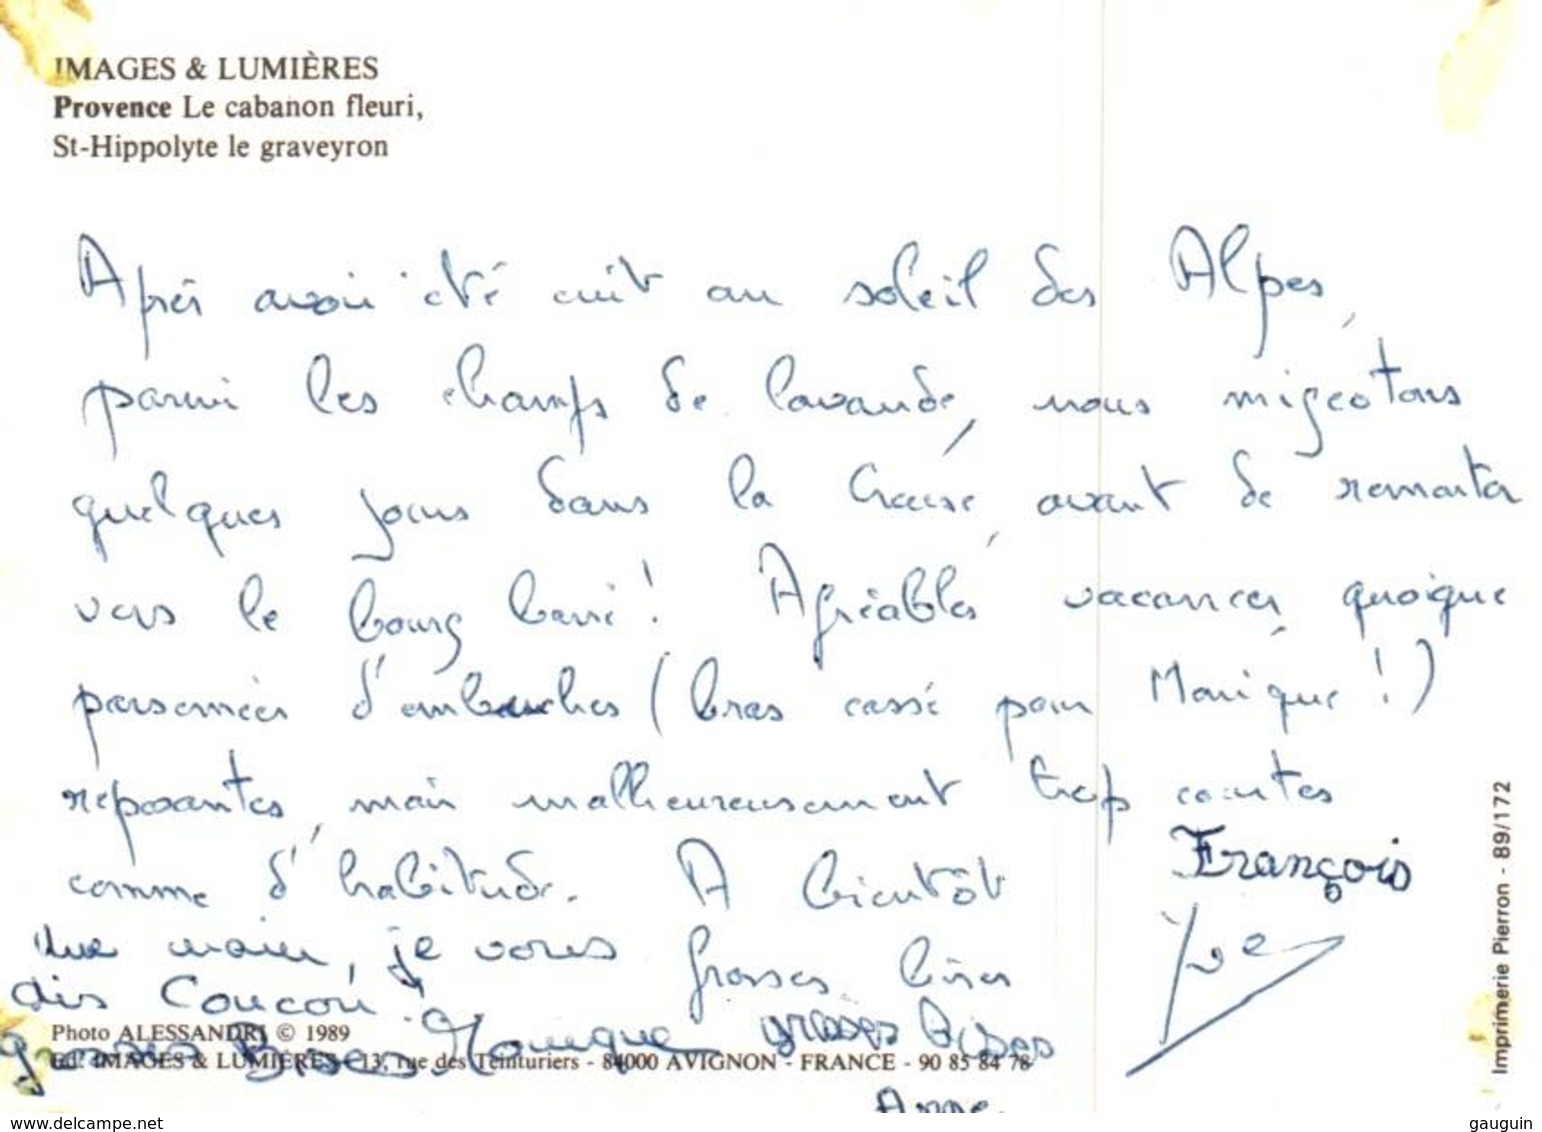 IMAGES & LUMIÈRES
Provence Le cabanon fleuri,
St-Hippolyte le graveyron
Après avoir été cuit au soleil des Alpes,
parmi les champs de lavande, nous migeotons
quelques jours dans la Creuse, avant de remonter
vers le bourg béni! Agréables vacances, quoique
parsemées d'embuches (bras cassé pour Monique!)
reposantes, mais malheureusement trop courtes
comme d'habitude. A bientôt
François
Une main, je vous grosses bises
Yve
dis Coucou!
grosses Bises Monique grosses Bises
Anne.
Photo ALESSANDRI © 1989
Ed. IMAGES & LUMIÈRES - 13, rue des Teinturiers - 84000 AVIGNON - FRANCE - 90 85 84 78
Imprimerie Pierron - 89/172
www.delcampe.net
gauguin